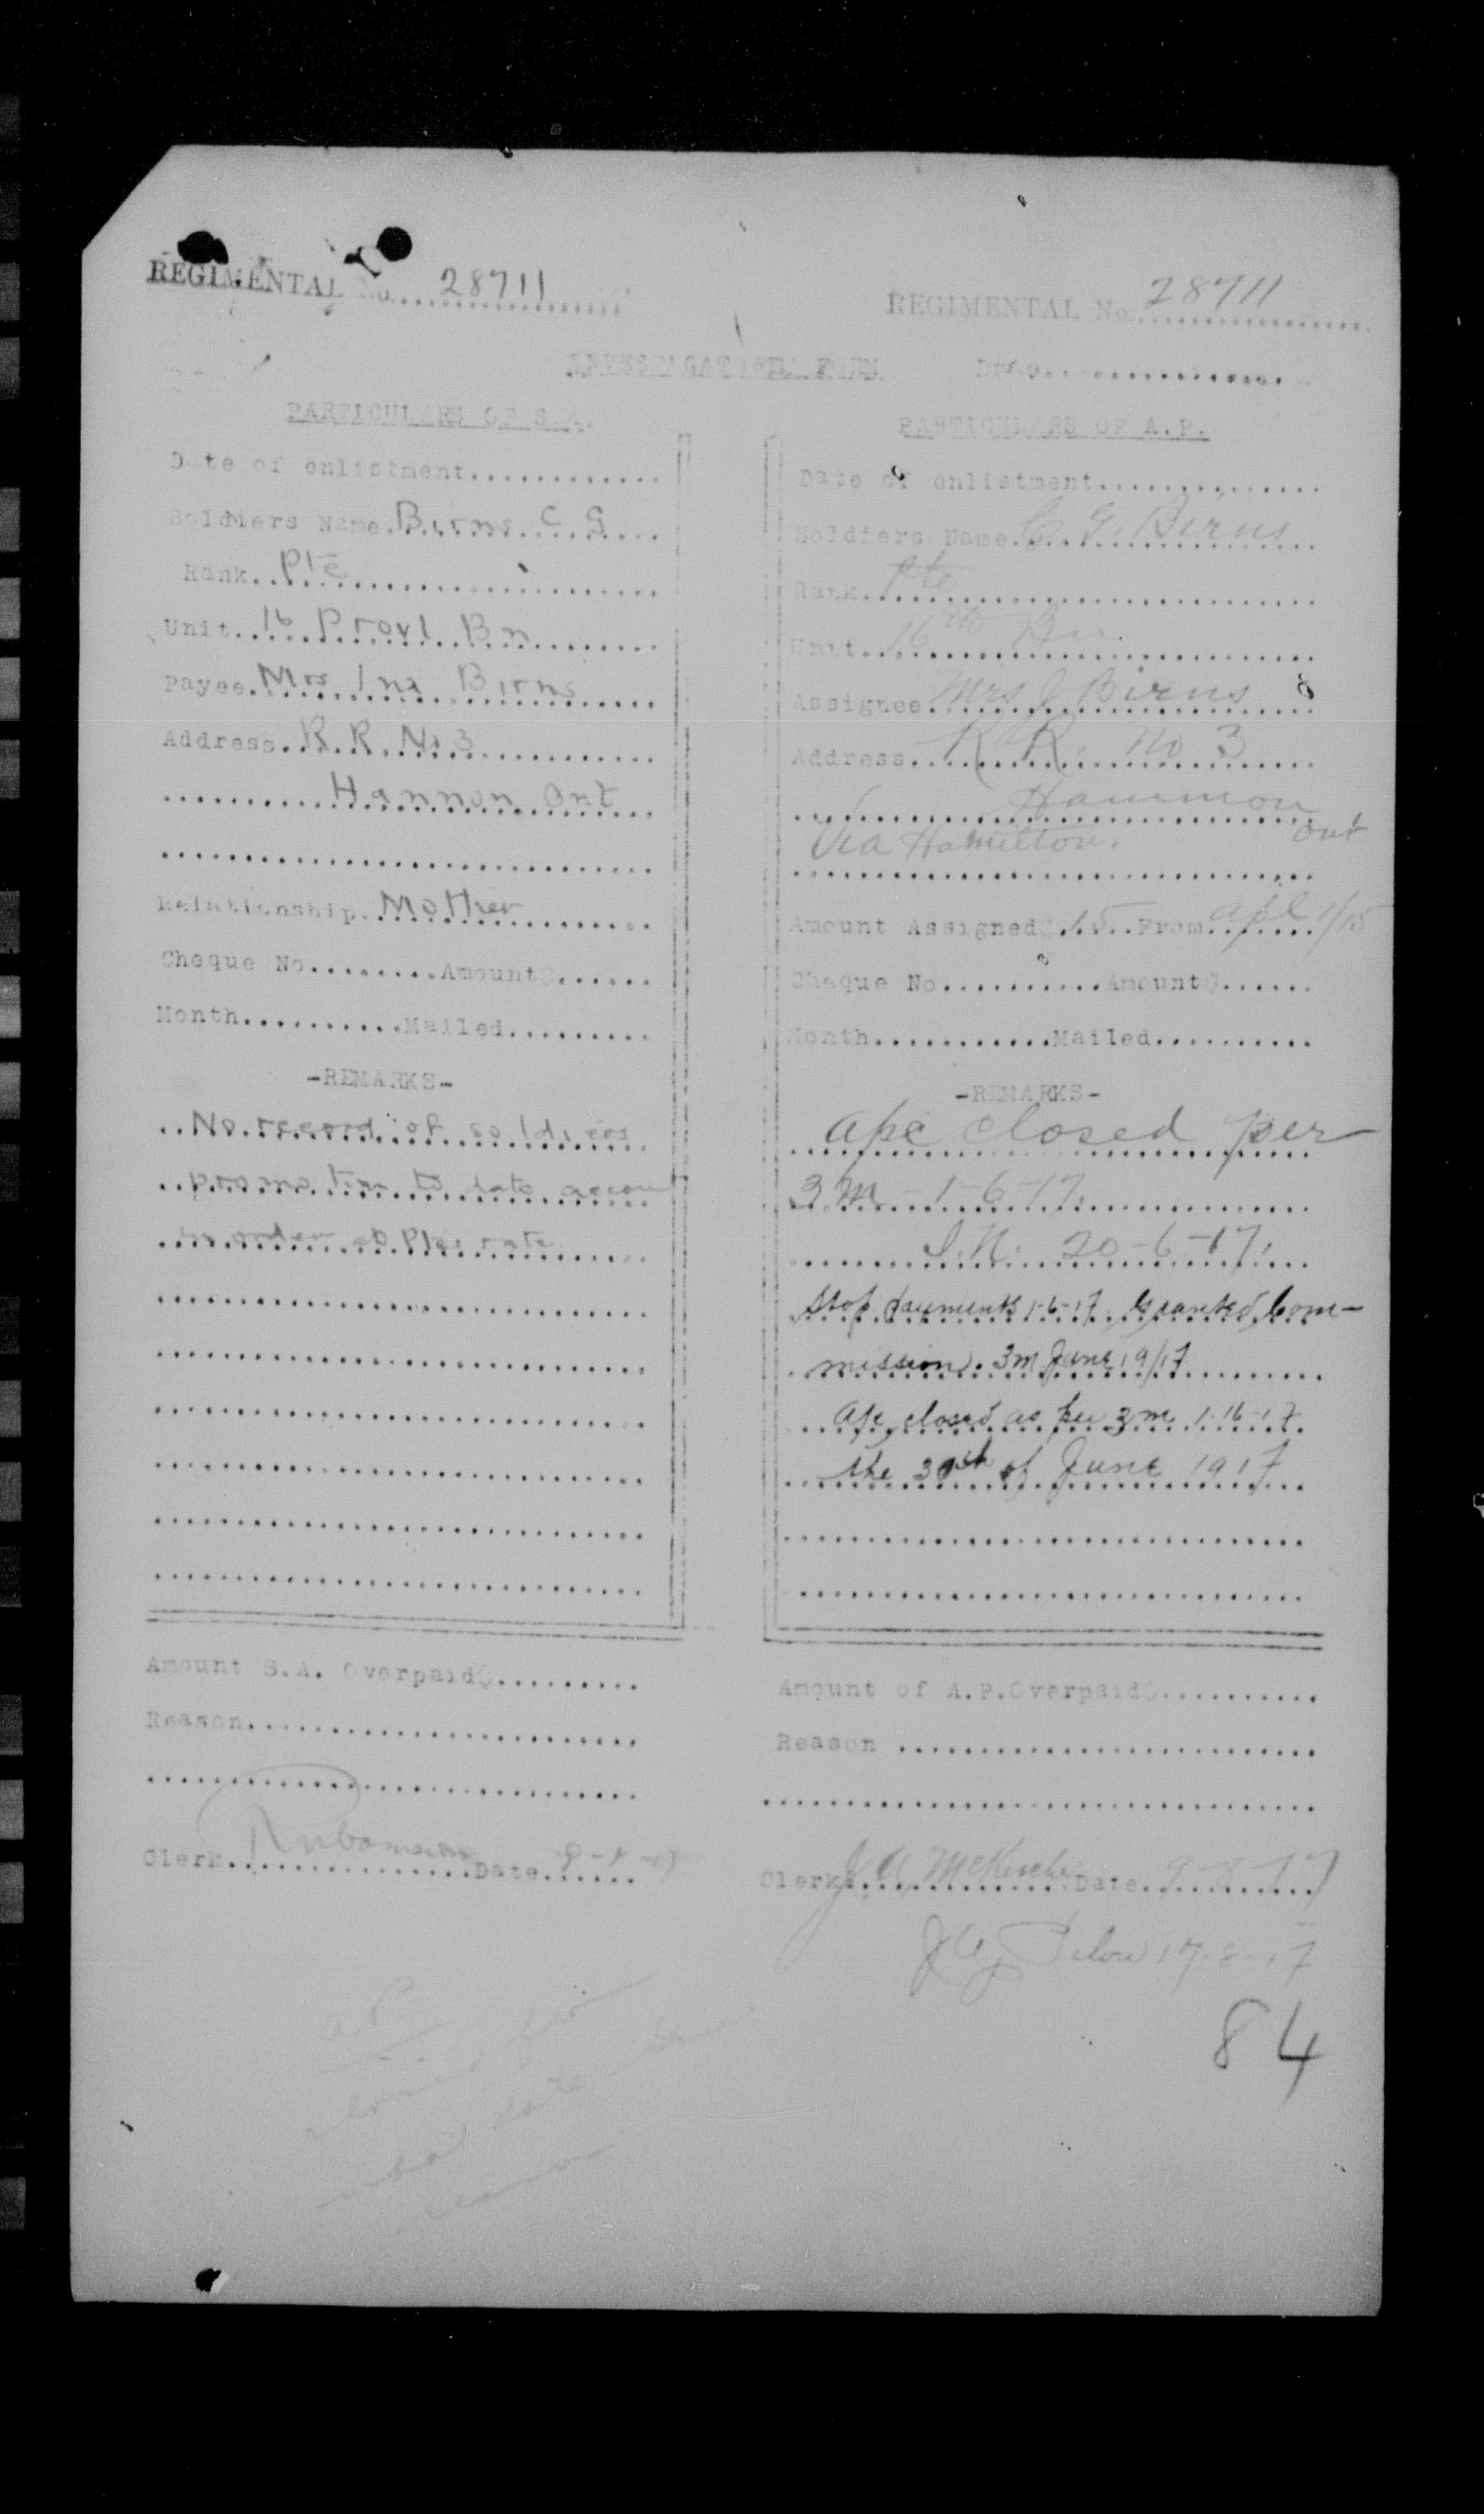 REGIMENTAL No. 28711
REGIMENTAL No. 28711
INVESTIGATION FORM Date
PARTICULARS OF S.A.
Date of enlistment
Soldiers Name Birns C. G
Rank Pte
Unit 16 Provl Bn
Payee Mrs Ina Birns
Address R. R. No 3
Hannon Ont
Relationship Mother
Cheque No. Amount$
Month Mailed
-REMARKS-
No record of soldiers
promotion to date account
in order at Ptes rate
Amount S.A. Overpaid$
Reason
Clerk Date
PARTICULARS OF A.P.
Date of enlistment
Soldiers Name C. G. Birns
Rank Pte
Unit 16th Bn
Assignee Mrs J Birns
Address R. R. No 3
Hammon
Via Hamilton. Ont
Amount Assigned$ 15 From Apl 1/15
Cheque No. Amount$
Month Mailed
-REMARKS-
a/c closed per
3 M - 1-6-17.
20-6-17.
Stop payments 1-6-17 Granted Com-
mission. 3m June 19/17
A/c closed as per 3m 1-16-17
the 30th of June 1917
Amount of A.P. Overpaid$
Reason
Clerk J A Date 9-8-17
17-8-17
84